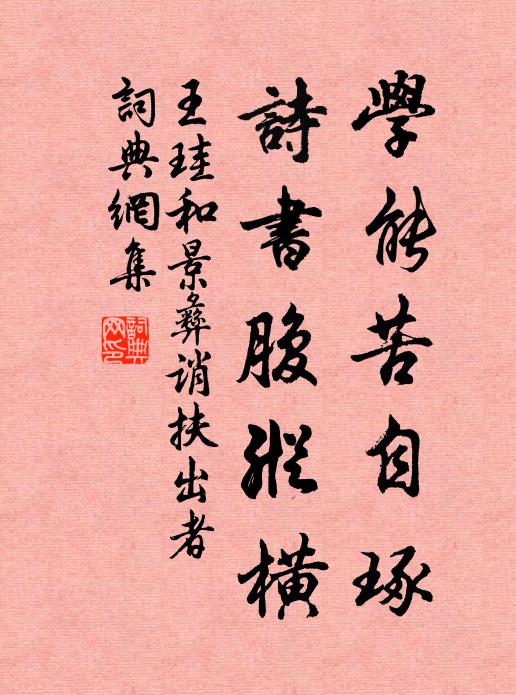 學能苦自琢
詩書腹縱橫
王珪和景彝誚扶出者
詞典網集
詞典網印